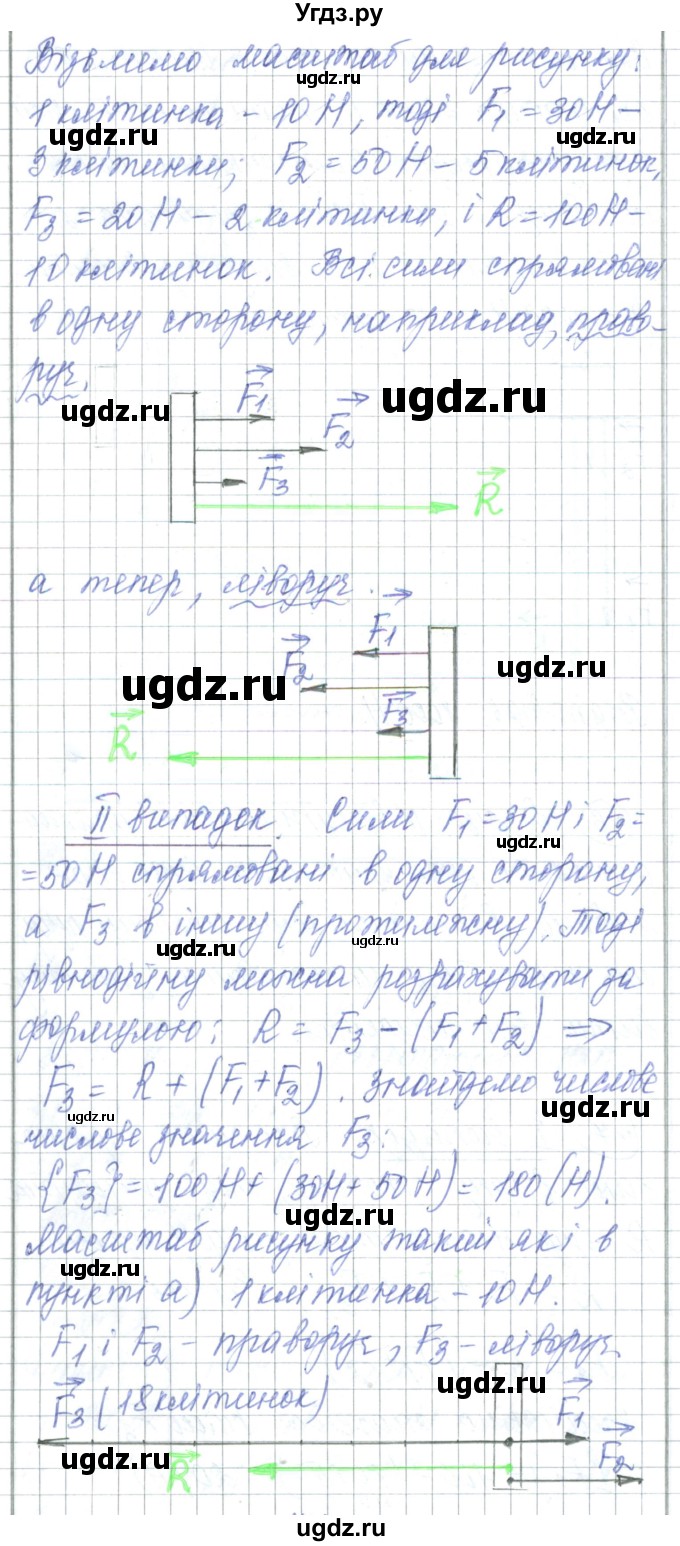 Угдз.ру
Візьмимо масштаб для рисунку:
1 клітинка - 10 Н, тоді F₁ = 30 Н -
3 клітинки; F₂ = 50 Н - 5 клітинок,
F₃ = 20 Н - 2 клітинки, і R = 100 Н -
10 клітинок. Всі сили спрямовані
в одну сторону, наприклад, право-
руч,
F₁
F₂
F₃
R
а тепер, ліворуч.
F₁
F₂
F₃
R
II випадок. Сили F₁ = 30 Н і F₂ =
= 50 Н спрямовані в одну сторону,
а F₃ в іншу (протилежну). Тоді
рівнодійну можна розрахувати за
формулою: R = F₃ - (F₁ + F₂) ⇒
F₃ = R + (F₁ + F₂). Знайдемо числове
числове значення F₃:
{F₃} = 100 Н + (30 Н + 50 Н) = 180 (Н).
Масштаб рисунку такий які в
пункті а) 1 клітинка - 10 Н.
F₁ і F₂ - праворуч, F₃ - ліворуч
F₃ (18 клітинок)
F₁
F₂
R
ugdz.ru